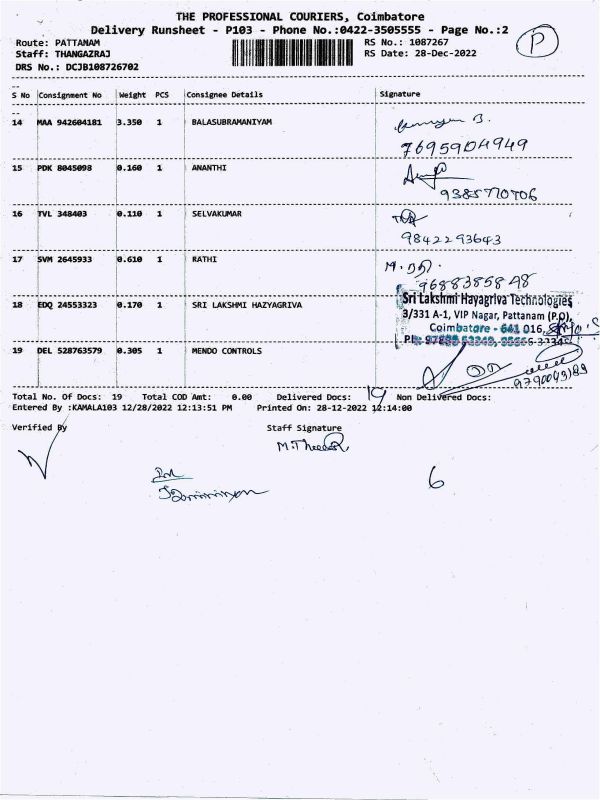 THE PROFESSIONAL COURIERS, Coimbatore
Delivery Runsheet - P103 - Phone No.:0422-3505555 - Page No.:2
Route: PATTANAM RS No.: 1087267
Staff: THANGAZRAJ RS Date: 28-Dec-2022
DRS No.: DCJB108726702
P
S No Consignment No Weight PCS Consignee Details Signature
14 MAA 942604181 3.350 1 BALASUBRAMANIYAM
7695904949
15 PDK 8045098 0.160 1 ANANTHI
9385770706
16 TVL 348403 0.110 1 SELVAKUMAR
9842293643
17 SVM 2645933 0.610 1 RATHI
9688385848
18 EDQ 24553323 0.170 1 SRI LAKSHMI HAZYAGRIVA
Sri Lakshmi Hayagriva Technologies
3/331 A-1, VIP Nagar, Pattanam (P.O),
Coimbatore - 641 016,
19 DEL 528763579 0.305 1 MENDO CONTROLS
9790043189
Total No. Of Docs: 19 Total COD Amt: 0.00 Delivered Docs: 19 Non Delivered Docs:
Entered By :KAMALA103 12/28/2022 12:13:51 PM Printed On: 28-12-2022 12:14:00
Verified By Staff Signature
6